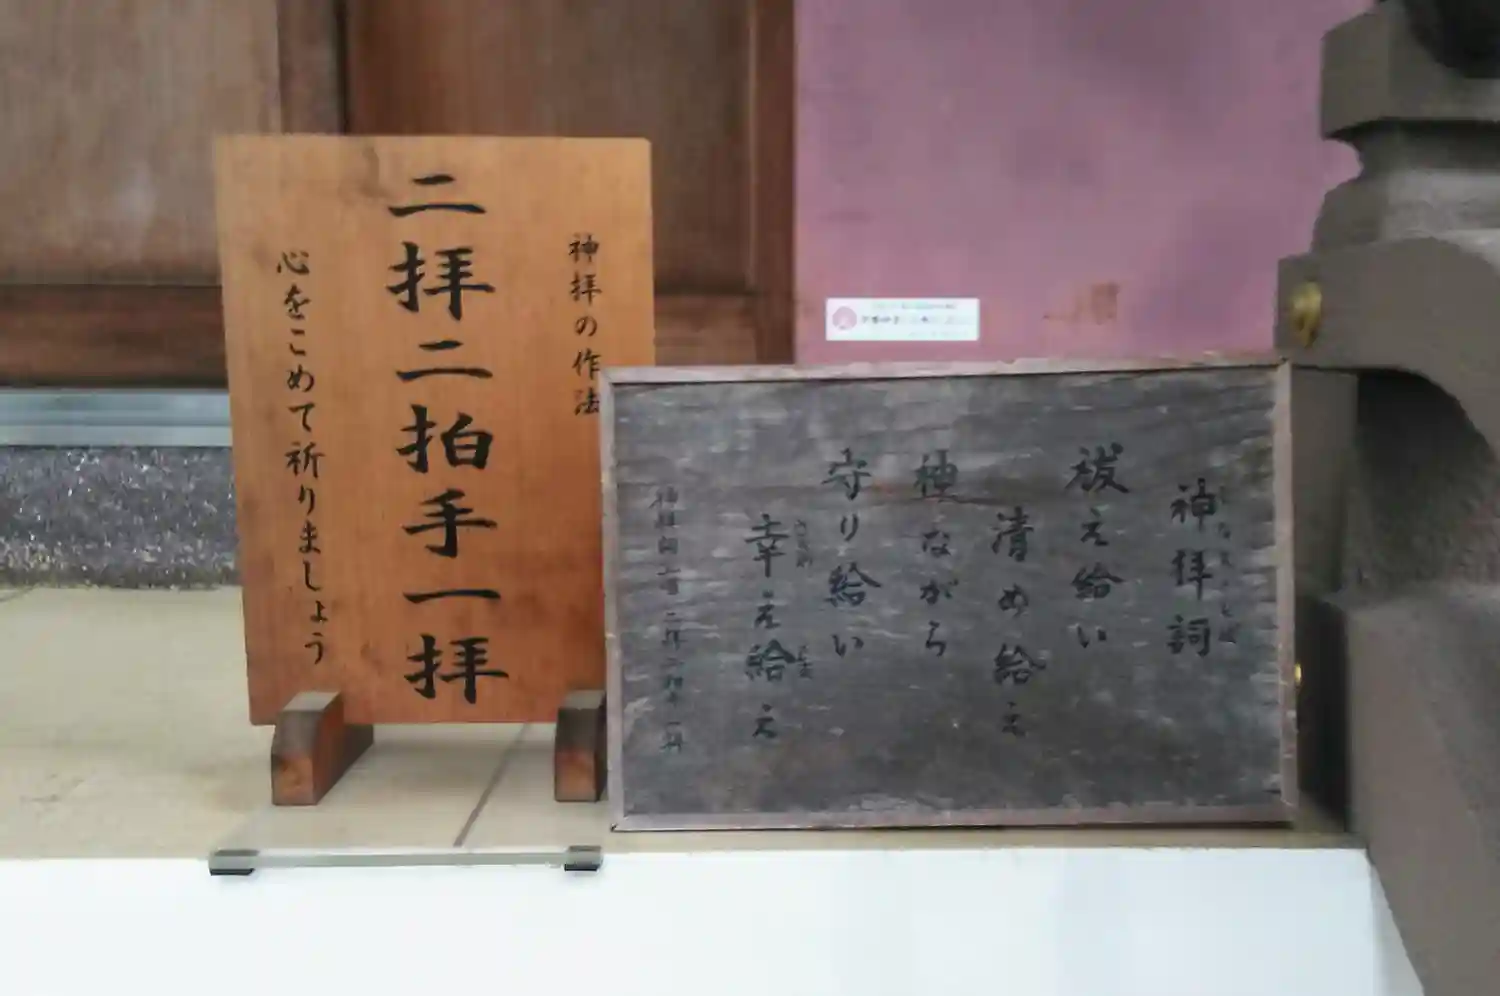 神拝の作法
二拝二拍手一拝
心をこめて祈りましょう
神拝詞
祓え給い
清め給え
神ながら
守り給い
幸え給え
二拝二拍手一拝